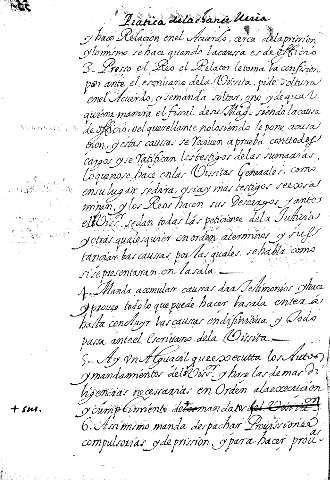 Pratica de la
y hace Relacion en el Acuerdo, cerca de la prision,
y lo mismo se hace quando la causa es de officio
3. Presso el Reo el Relator le toma la confission
por ante el escrivano de la Visita, pide soltura
en el Acuerdo, y se manda soltar, o no, y de qual
quiera manera el fiscal de su Magd. siendo la causa
de officio, o el querellante no lo siendo le pone acusa
tion, y estas causas se reciven a prueva con todos
cargos y se ratifican los testigos de las sumarias,
lo que no se hace en las Visitas Generales, como
en su lugar se dira, y si ay mas testigos se exsa
minan, y los Reos hacen sus descargos, y ante
el se dan todas las peticiones de la Justicia
y otras qualesquier en orden a terminos y sus
tanciar las causas, por las quales, se habla como
si se presentaran en la sala.
4. Manda acumular causas dar Testimonios, y hace
y provee todo lo que puede hacer la sala entera
hasta concluyr las causas en difinitiva, y todo
passa ante el Escrivano de la Visita.
5. Ay un Alguacil que executta los Autos
y mandamientos del y para las demas di
ligencias necessarias en Orden a la execucion
+ sus. y cumplimiento de mandatos del
6. Assimismo manda despachar Provissiones
compulsorias y de prission, y para hacer